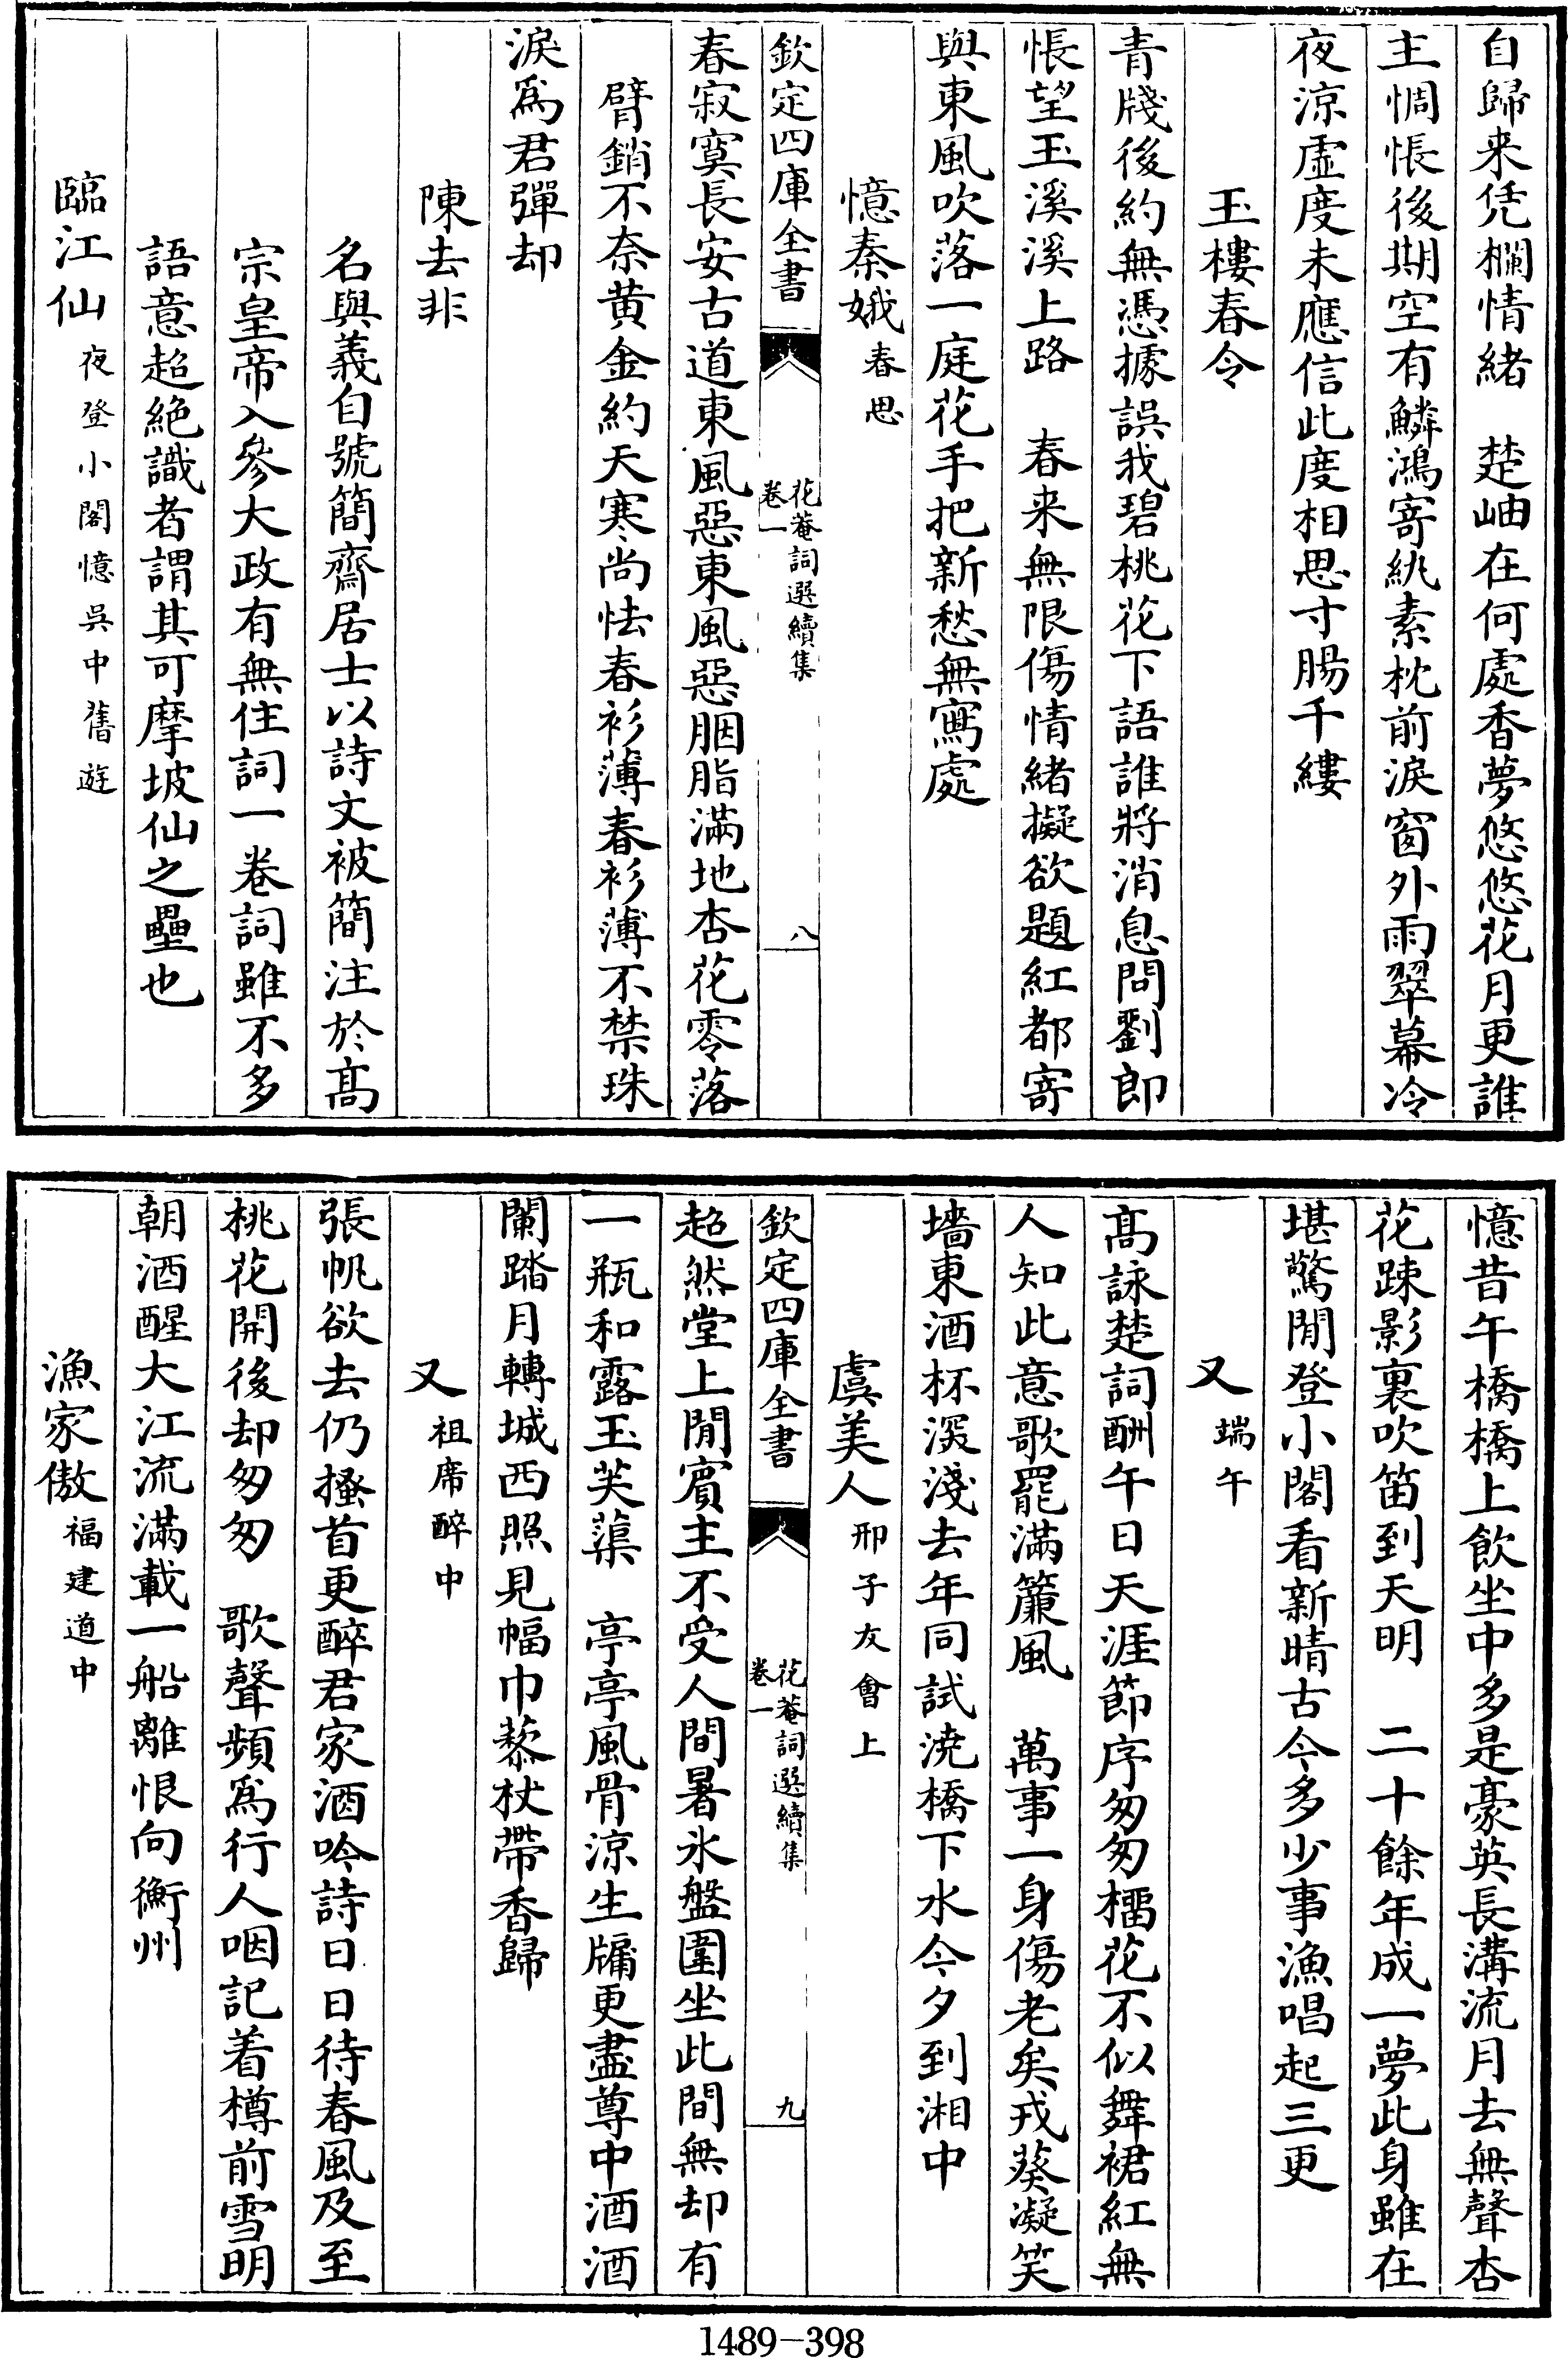 自歸来凭欄情緒　楚岫在何處香夢悠悠花月更誰
主惆悵後期空有鱗鴻寄紈素枕前淚窗外雨翠幕冷
夜涼虛度未應信此度相思寸腸千縷
玉樓春令
青牋後約無憑據誤我碧桃花下語誰將消息問劉郎
悵望玉溪溪上路　春来無限傷情緒擬欲題紅都寄
與東風吹落一庭花手把新愁無寫處
憶秦娥春思
欽定四庫全書　花菴詞選續集　卷一　八
春寂寞長安古道東風惡東風惡胭脂滿地杏花零落
臂銷不奈黄金約天寒尚怯春衫薄春衫薄不禁珠
淚爲君彈却
陳去非
名與義自號簡齋居士以詩文被簡注於髙
宗皇帝入參大政有無住詞一卷詞雖不多
語意超絶識者謂其可摩坡仙之壘也
臨江仙夜登小閣憶吳中舊遊
憶昔午橋橋上飲坐中多是豪英長溝流月去無聲杏
花踈影裏吹笛到天明　二十餘年成一夢此身雖在
堪驚閒登小閣看新晴古今多少事漁唱起三更
又端午
髙詠楚詞酬午日天涯節序匆匆橊花不似舞裙紅無
人知此意歌罷滿簾風　萬事一身傷老矣戎葵凝笑
墻東酒杯深淺去年同試澆橋下水今夕到湘中
虞美人邢子友會上
欽定四庫全書　花菴詞選續集　卷一　九
超然堂上閒賓主不受人間暑氷盤圍坐此間無却有
一瓶和露玉芙蕖　亭亭風骨涼生牖更盡尊中酒酒
闌踏月轉城西照見幅巾藜杖帶香歸
又祖席醉中
張帆欲去仍搔首更醉君家酒吟詩日日待春風及至
桃花開後却匆匆　歌聲頻爲行人咽記着樽前雪明
朝酒醒大江流滿載一船離恨向衡州
漁家傲福建道中
1489-398